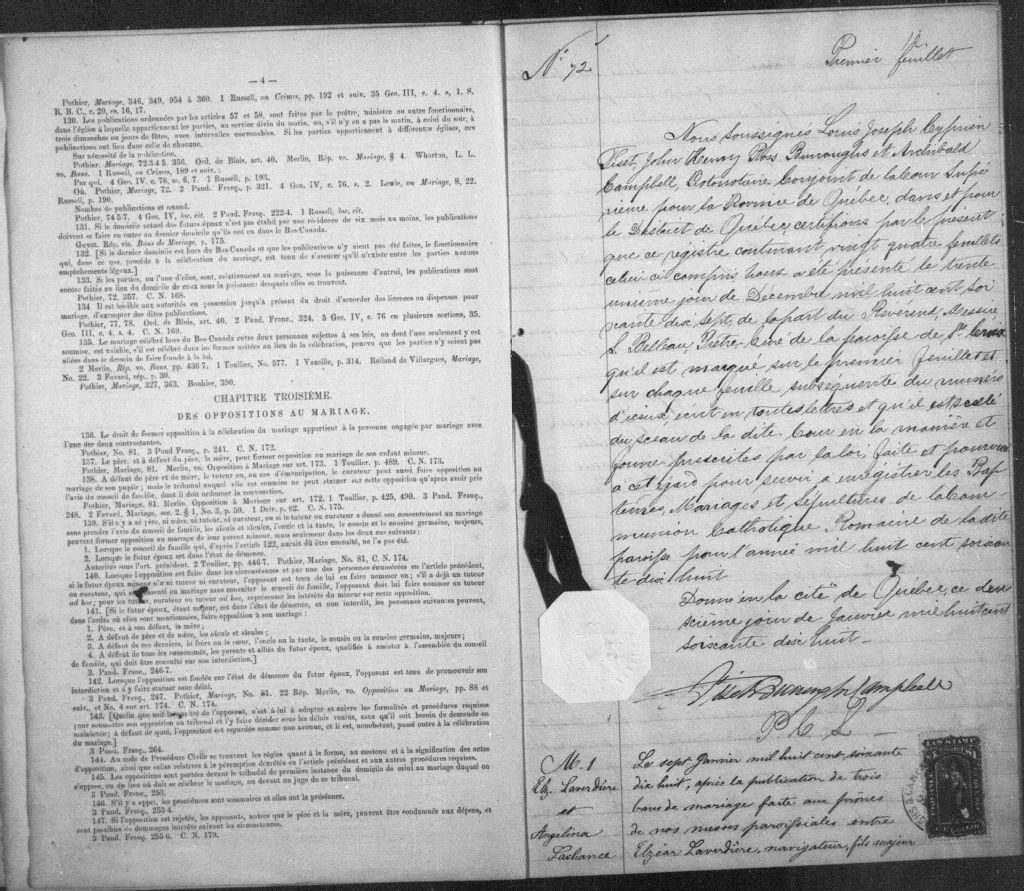 — 4 —
Pothier, Mariage, 346, 349, 954 à 360. 1 Russell, on Crimes, pp. 192 et suiv. 35 Geo. III, c. 4. s, 1. S.
R. B. C., c. 20, ss. 16, 17.
130. Les publications ordonnées par les articles 57 et 58, sont faites par le prêtre, ministre ou autre fonctionnaire,
dans l'église à laquelle appartiennent les parties, au service divin du matin, ou, s'il n'y en a pas le matin, à celui du soir, à
trois dimanches ou jours de fêtes, avec intervalles convenables. Si les parties appartiennent à différentes églises, ces
publications ont lieu dans celle de chacune.
Sur nécessité de la publication.
Pothier, Mariage, 72. 3 4 5. 356, Ord. de Blois, art. 40. Merlin, Rép. vo. Mariage, § 4. Wharton, L. L.
vo. Bans. 1 Russell, on Crimes, 189 et suiv.
Par qui. 4 Geo. IV, c. 76, ss. 6, 7. 1 Russell, p. 193.
Où. Pothier, Mariage, 72. 2 Pand. Franç., p. 321. 4 Geo. IV, c. 76, s. 2. Lewis, on Mariage, 8, 22.
Russell, p. 190.
Nombre de publications et quand.
Pothier, 74 5-7. 4 Geo. IV, loc. cit. 2 Pand. Franç. 222-4. 1 Russell, loc. cit.
131. Si le domicile actuel des futurs époux n'est pas établi par une résidence de six mois au moins, les publications
doivent se faire en outre au dernier domicile qu'ils ont eu dans le Bas-Canada.
Guyot. Rép. vis. Bans de Mariage, p. 175.
132. [Si le dernier domicile est hors du Bas-Canada et que les publications n'y aient pas été faites, le fonctionnaire
qui, dans ce cas, procède à la célébration du mariage, est tenu de s'assurer qu'il n'existe entre les parties aucuns
empêchements légaux.]
133. Si les parties, ou l'une d'elles, sont, relativement au mariage, sous la puissance d'autrui, les publications sont
encore faites au lieu du domicile de ceux sous la puissance desquels elles se trouvent.
Pothier, 72, 357. C. N. 168.
134 Il est loisible aux autorités en possession jusqu'à présent du droit d'accorder des licences ou dispenses pour
mariage, d'exempter des dites publications.
Pothier, 77, 78. Ord. de Blois, art. 40, 2 Pand. Franç., 324. 5 Geo. IV, c. 76 en plusieurs sections, 35.
Geo. III, c. 4, s. 4. C. N. 169.
135. Le mariage célébré hors du Bas-Canada entre deux personnes sujettes à ses lois, ou dont l'une seulement y est
soumise, est valable, s'il est célébré dans les formes usitées au lieu de la célébration, pourvu que les parties n'y soient pas
allées dans le dessein de faire fraude à la loi.
2 Merlin, Rép. vo. Bans, pp. 436 7. 1 Toullier, No. 577. 1 Vazeille, p. 314. Rolland de Villargues, Mariage,
No. 22. 3 Favard, rép., p. 30.
Pothier, Mariage, 327, 363. Bouhier, 390.
CHAPITRE TROISIÈME.
DES OPPOSITIONS AU MARIAGE.
136. Le droit de former opposition à la célébration du mariage appartient à la personne engagée par mariage avec
l'une des deux contractantes.
Pothier, No. 81. 3 Pand Franç., p. 241. C. N. 172.
137. Le père, et à défaut du père, la mère, peut former opposition au mariage de son enfant mineur.
Pothier, Mariage, 81. Merlin, vo. Opposition à Mariage sur art. 173. 1 Toullier, p. 489. C. N. 173.
138. A défaut de père et de mère, le tuteur ou, au cas d'émancipation, le curateur peut aussi faire opposition au
mariage de son pupile; mais le tribunal auquel elle est soumise ne peut statuer sur cette opposition qu'après avoir pris
l'avis du conseil de famille, dont il doit ordonner la convention.
Pothier, Mariage, 81. Merlin, Opposition à Mariage sur art. 172, 1 Toullier, p. 425, 490. 3 Pand. Franç.,
248. 2 Favard, Mariage, sec. 2, § 1, No. 3, p. 59, 1 Delv. p. 62. C. N. 175.
139. S'il n'y a ni père, ni mère, ni tuteur, ni curateur, ou si le tuteur ou curateur a donné son consentement au mariage
sans prendre l'avis du conseil de famille, les aïeuls et aïeules, l'oncle et la tante, le cousin et la cousine germains, majeurs,
peuvent former opposition au mariage de leur parent mineur, mais seulement dans les deux cas suivants:
1. Lorsque le conseil de famille qui, d'après l'article 122, aurait dû être consulté, ne l'a pas été.
2. Lorsque le futur époux est dans l'état de démence.
Autorités sous l'art. précédent. 2 Toullier, pp. 446-7. Pothier, Mariage, No. 81, C. N. 174.
140. Lorsque l'opposition est faite dans les circonstances et par une des personnes énumérées en l'article précédent,
si le futur époux mineur n'a ni tuteur ni curateur, l'opposant est tenu de lui en faire nommer un; s'il a déjà un tuteur
ou curateur, qui ait consenti au mariage sans consulter le conseil de famille, l'opposant doit lui faire nommer un tuteur
ad hoc; pour les tuteur, curateur ou tuteur ad hoc, représenter les intérêts du mineur sur cette opposition.
141. [Si le futur époux, étant majeur, est dans l'état de démence, et non interdit, les personnes suivantes peuvent,
dans l'ordre où elles sont mentionnées, faire opposition à son mariage:
1. Père, et à son défaut, la mère;
2. A défaut de père et de mère, les aïeuls et aïeules;
3. A défaut de ces derniers, le frère ou la sœur, l'oncle ou la tante, le cousin ou la cousine germains, majeurs;
4. A défaut de tous les susnommés, les parents et alliés du futur époux, qualifiés à assister à l'assemblée du conseil
de famille, qui doit être consulté sur son interdiction.]
3 Pand. Franç., 246-7.
142. Lorsque l'opposition est fondée sur l'état de démence du futur époux, l'opposant est tenu de promouvoir son
interdiction et d'y faire statuer sans délai.
3 Pand. Franç., 247. Pothier, Mariage, No. 81. 22 Rép. Merlin, vo. Opposition au Mariage, pp. 88 et
suiv., et No. 4 sur art. 174. C. N. 174.
143. [Quelle que soit la qualité de l'opposant, c'est à lui à adopter et suivre les formalités et procédures requises
pour soumettre son opposition au tribunal et l'y faire décider sous les délais voulus, sans qu'il soit besoin de demande en
mainlevée; à défaut de quoi, l'opposition est regardée comme non avenue, et il est, nonobstant, passé outre à la célébration
du mariage.]
3 Pand. Franç., 264.
144. Au code de Procédure Civile se trouvent les règles quant à la forme, au contenu et à la signification des actes
d'opposition, ainsi que celles relatives à la péremption décrétée en l'article précédent et aux autres procédures requises.
145. Les oppositions sont portées devant le tribunal de première instance du domicile de celui au mariage duquel on
s'oppose, ou du lieu où doit se célébrer le mariage, ou devant un juge de ce tribunal.
3 Pand. Franç., 253.
146. S'il y a appel, les procédures sont sommaires et elles ont la préséance.
3 Pand. Franç., 253-4.
147. Si l'opposition est rejetée, les opposants, autres que le père et la mère, peuvent être condamnés aux dépens, et
sont passibles de dommages intérêts suivant les circonstances.
3 Pand. Franç. 255-6. C. N. 179.
No. 72
Premier feuillet
Nous soussignés Louis Joseph Cyprien
Fiset, John Henry Ross Burroughs et Archibald
Campbell, Protonotaire Conjoint de la Cour Supé
rieure pour la Province de Québec, dans et pour
le District de Québec, certifions par le présent
que ce registre contenant vingt quatre feuillets
celui ci compris nous a été présenté le trente
unième jour de Décembre mil huit cent soi
xante dix sept, de la part du Révérend Messire
L. Belleau, Prêtre, Curé de la paroisse de Ste. Croix
qu'il est marqué sur le premier feuillet et
sur chaque feuille subséquente du numéro
d'iceux, écrit en toutes lettres et qu'il est scellé
du sceau de la dite Cour en la manière et
forme prescrites par la loi, faite et pourvue
à cet égard pour servir à enrégistrer les Bap
têmes, Mariages et Sépultures de la Com-
munion Catholique Romaine de la dite
paroisse pour l'année mil huit cent soixan
te dix huit
Donné en la cité de Québec, ce deu
xième jour de Janvier mil huit cent
soixante dix huit —
Fiset Burroughs Campbell
P. C. S.
M. 1
Elz. Laverdière
et
Angelina
Lachance
Le sept Janvier mil huit cent soixante
dix huit, après la publication de trois
bans de mariage faite aux prônes
de nos messes paroissiales entre
Elzéar Laverdière, navigateur, fils majeur
LAW STAMP